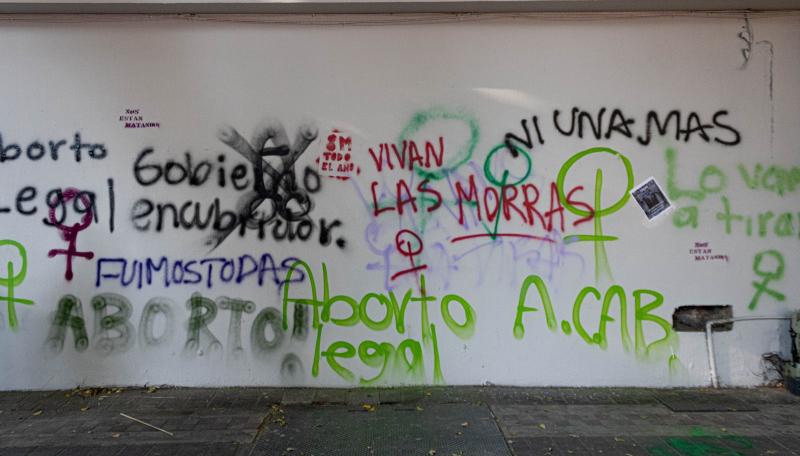 NOS
ESTAN
MATANDO
borto
Legal
Gobierno
encubridor.
8M
TODO
EL AÑO
VIVAN
LAS MORRAS
NI UNA MAS
Lo vam
a tirar
NOS
ESTAN
MATANDO
FUIMOS TODAS
ABORTO!
Aborto
legal
A.CAB.